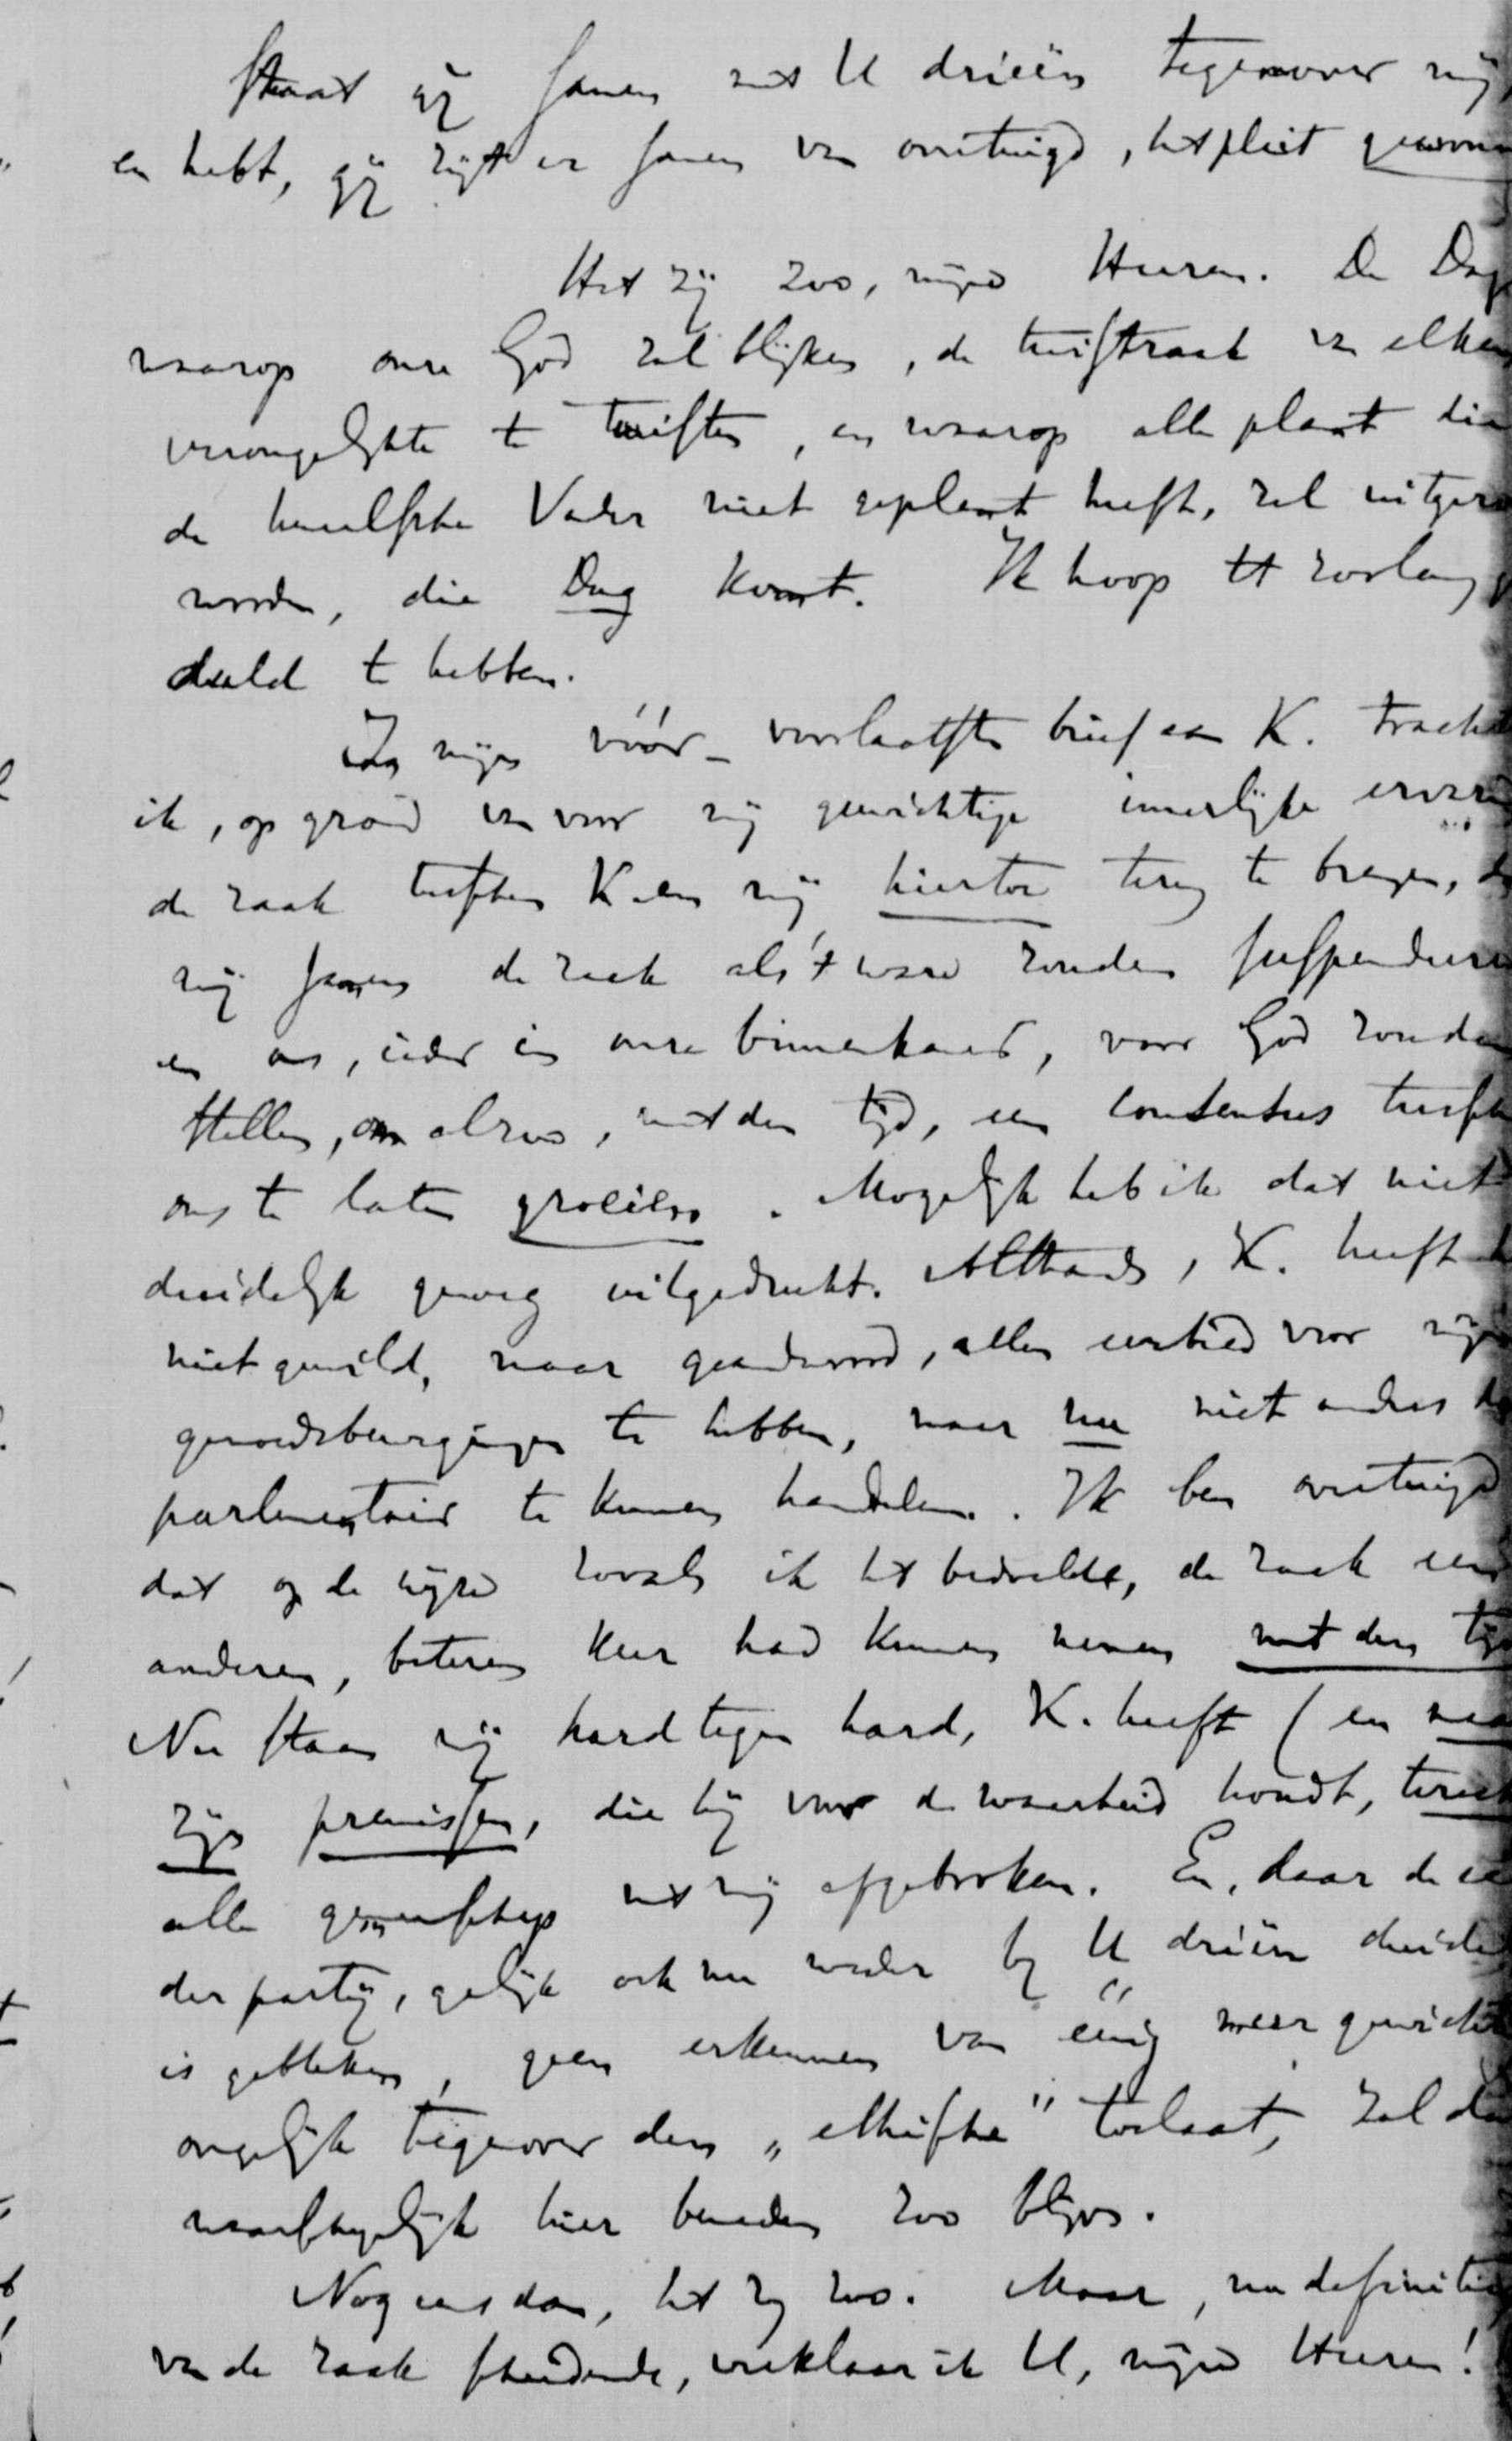 staat gij samen met U drieën tegenover mij
en hebt, gij zijt er samen van overtuigd, het pleit gewonn
Het zij zoo, mijne Heeren. De Dag
waarop onze God zal blijken, de twistzaak van elken
verongelijkte te twisten, en waarop alle plant die
de hemelsche Vader niet geplant heeft, zal uitgero
worden, die Dag komt. Ik hoop tot zoolang ge
duld te hebben.
In mijn vóór-voorlaatste brief aan K. trachtte
ik, op grond van voor mij gewichtige innerlijke ervarin
de zaak tusschen K. en mij hiertoe terug te brengen, da
wij samen de zaak als 't ware zouden suspendeeren
en ons, ieder in onze binnenkamer, voor God zouden
stellen, om alzoo, met den tijd, een consensus tusschen
ons te laten groeien. Mogelijk heb ik dat niet
duidelijk genoeg uitgedrukt. Althans, K. heeft
niet gewild, maar geantwoord, allen eerbied voor mijn
gemoedsbewegingen te hebben, maar nu niet anders da
parlementair te kunnen handelen. Ik ben overtuigd
dat op de wijze zooals ik het bedoelde, de zaak een
anderen, beteren keer had kunnen nemen met den tijd
Nu staan wij hard tegen hard, K. heeft (en naar
zijn premissen, die hij voor de waarheid houdt, terecht
alle gemeenschap met mij afgebroken. En, daar de
der partij, gelijk ook nu weder bij U drieën duidel
is gebleken, geen erkennen van éénig meer gewicht
ongelijk tegenover den „ethische" toelaat, zal da
waarschijnlijk hier beneden zoo blijven.
Nog eens dan, het zij zoo. Maar, nu definitief
van de zaak scheidende, verklaar ik U, mijne Heeren!